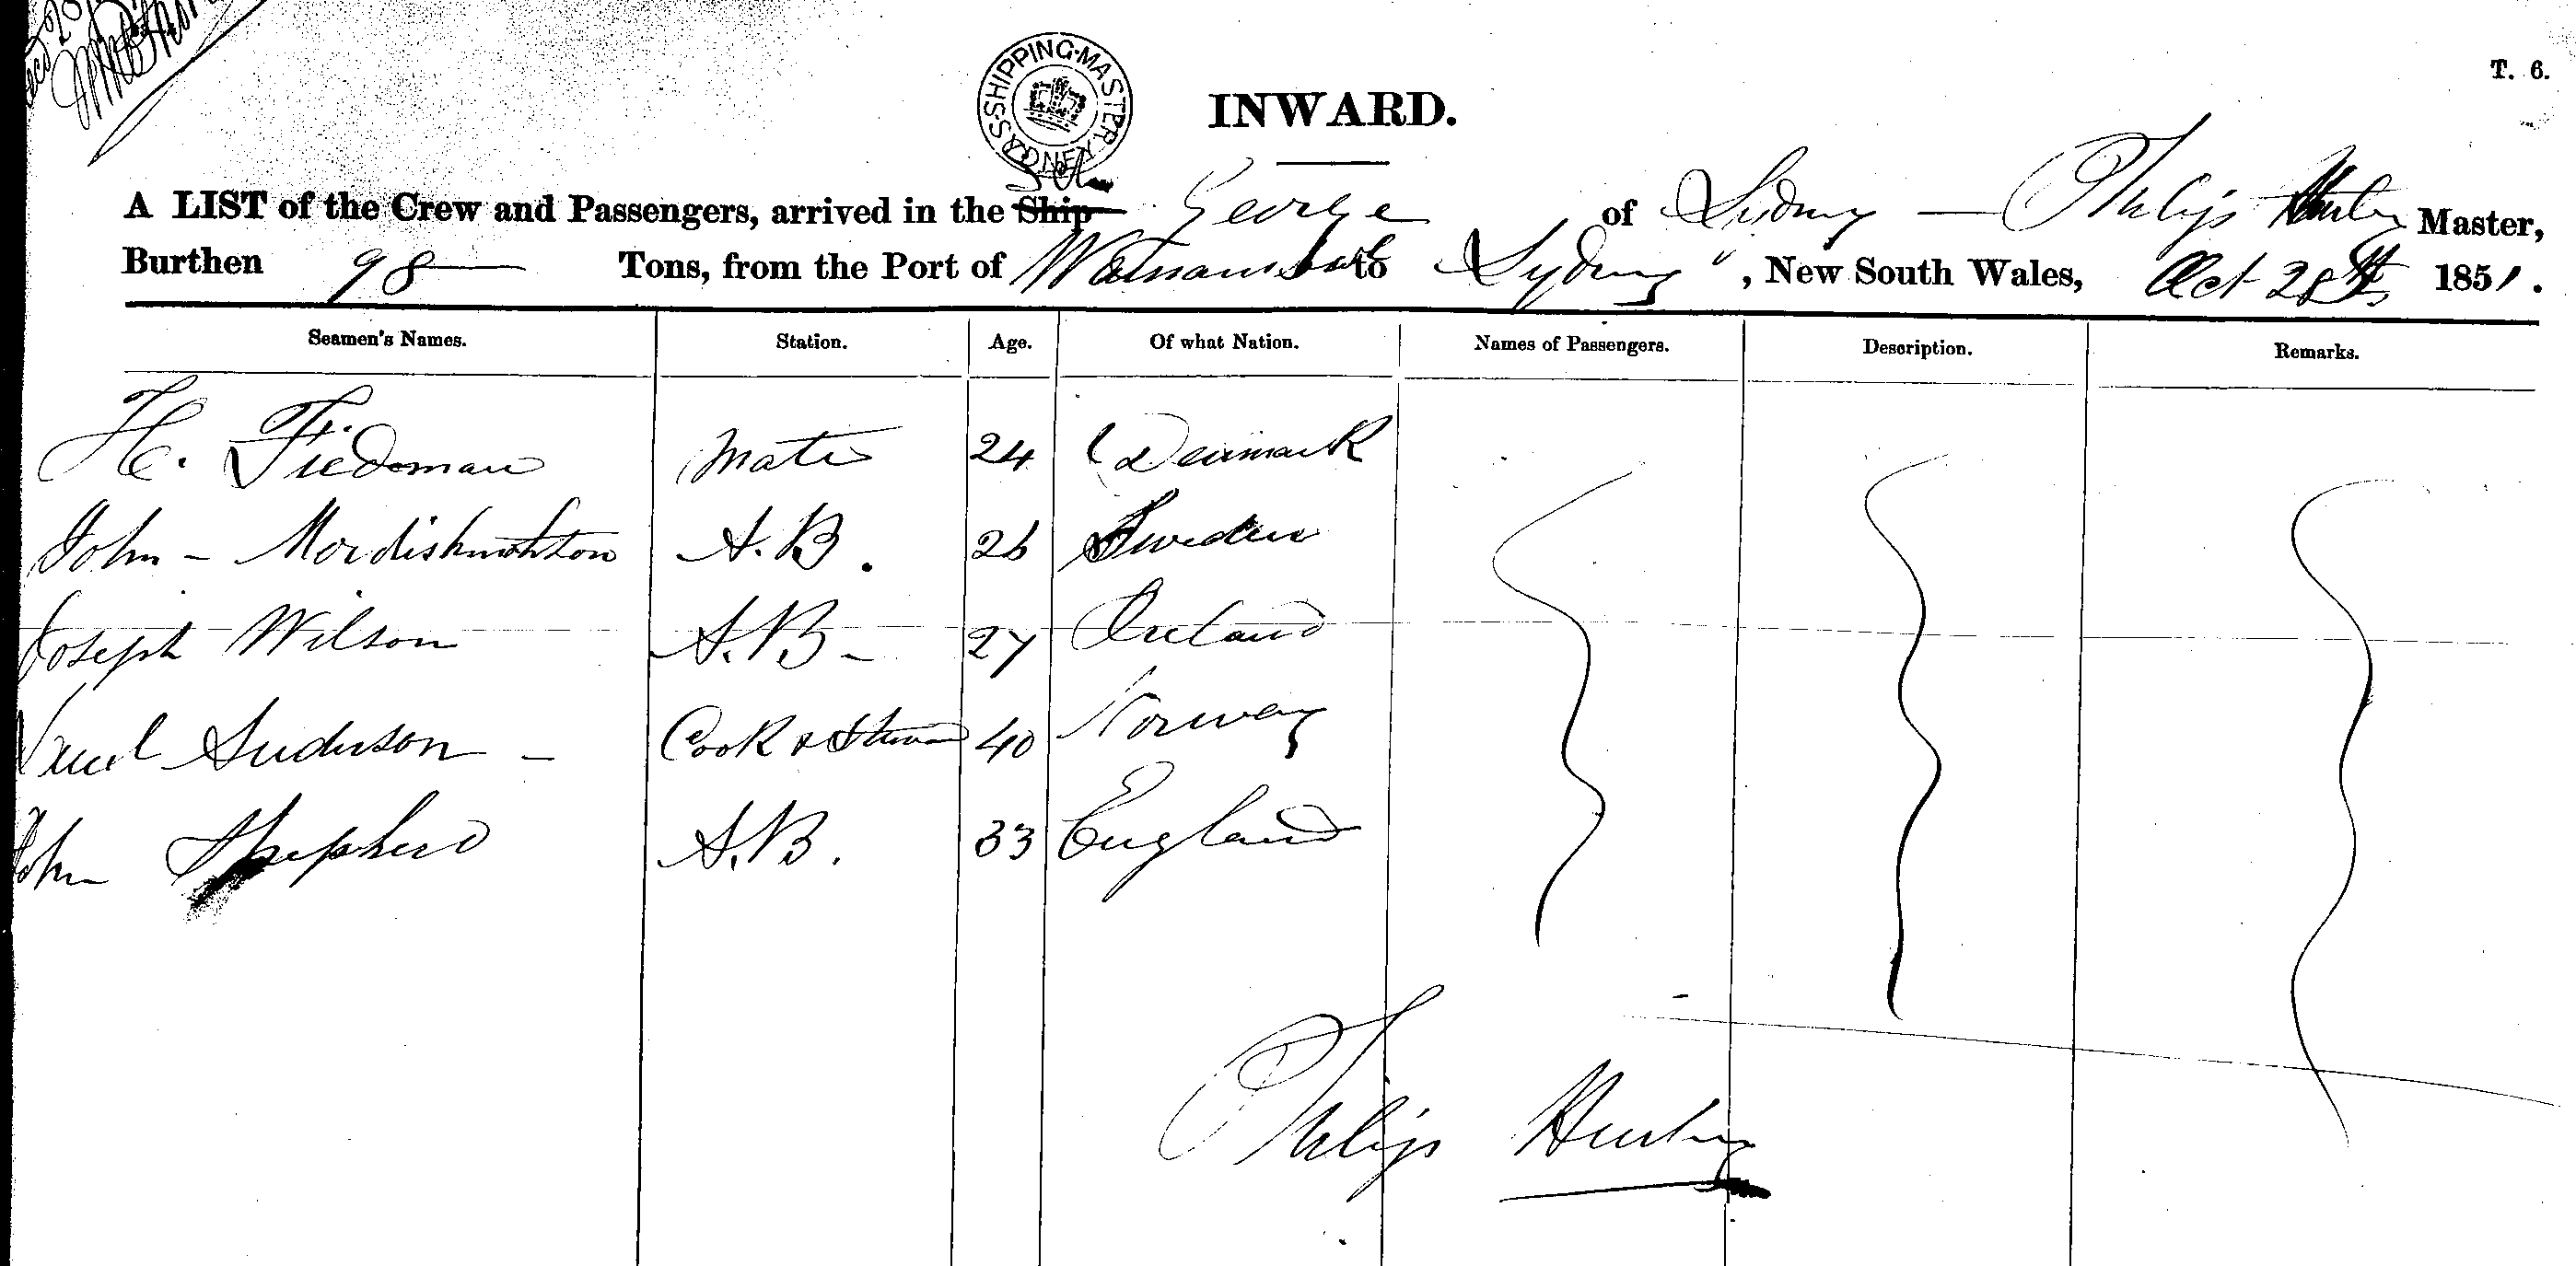 T. 6.
SHIPPING MASTER SYDNEY
INWARD.
A LIST of the Crew and Passengers, arrived in the Ship George of Sydney — Philip Master,
Burthen 98 Tons, from the Port of to Sydney, New South Wales, Oct 28th 1851.
Seamen's Names. Station. Age. Of what Nation. Names of Passengers. Description. Remarks.
H. Mate 24 Denmark
John - A.B. 26 Sweden
Joseph Wilson A.B - 27 Ireland
Anderson - Cook & 40 Norway
John Shepherd A.B. 33 England
Philip